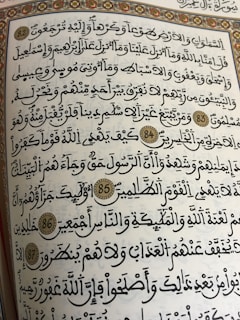 السَّمَٰوَٰتِ وَالَارْضِ طَوْعاً وَكَرْهاً وَإِلَيْهِ تُرْجَعُونَ 82
قُلَ اٰمَنَّا بِاللَّهِ وَمَا أُنزِلَ عَلَيْنَا وَمَا أُنزِلَ عَلَىٰ إِبْرَٰهِيمَ وَإِسْمَٰعِيلَ
وَإِسْحَٰقَ وَيَعْقُوبَ وَالَاسْبَاطِ وَمَا أُوتِيَ مُوسَىٰ وَعِيسَىٰ
وَالنَّبِيـُٔونَ مِن رَّبِّهِمْ لَا نُفَرِّقُ بَيْنَ أَحَدٍ مِّنْهُمْ وَنَحْنُ لَهُ
مُسْلِمُونَ 83 وَمَنْ يَّبْتَغِ غَيْرَ الِاسْلَٰمِ دِيناً فَلَنْ يُّقْبَلَ مِنْهُ وَهُوَ
فِي الَاخِرَةِ مِنَ الْخَٰسِرِينَ 84 كَيْفَ يَهْدِي اللَّهُ قَوْماً كَفَرُواْ
إِيمَٰنِهِمْ وَشَهِدُواْ أَنَّ الرَّسُولَ حَقٌّ وَجَآءَهُمُ الْبَيِّنَٰتُ
لَا يَهْدِي الْقَوْمَ الظَّٰلِمِينَ 85 أُوْلَٰئِكَ جَزَآؤُهُمُ أَنَّ
لَعْنَةَ اللَّهِ وَالْمَلَٰئِكَةِ وَالنَّاسِ أَجْمَعِينَ 86 خَٰلِدِينَ
يُخَفَّفُ عَنْهُمُ الْعَذَابُ وَلَا هُمْ يُنظَرُونَ 87
تَابُواْ مِنْ بَعْدِ ذَٰلِكَ وَأَصْلَحُواْ فَإِنَّ اللَّهَ غَفُورٌ رَّحِيمٌ